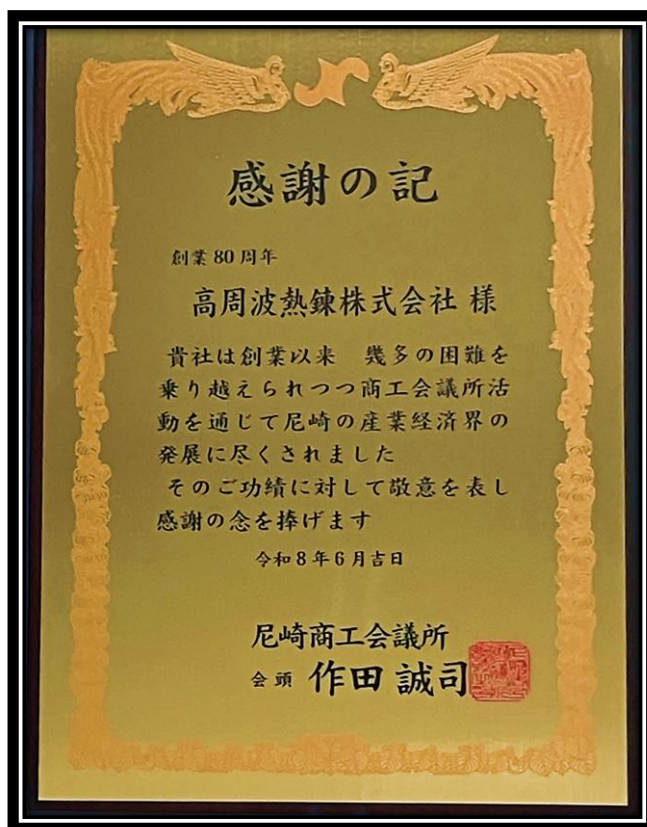 感謝の記
創業80周年
高周波熱錬株式会社 様
貴社は創業以来　幾多の困難を
乗り越えられつつ商工会議所活
動を通じて尼崎の産業経済界の
発展に尽くされました
そのご功績に対して敬意を表し
感謝の念を捧げます
令和8年6月吉日
尼崎商工会議所
会頭 作田誠司